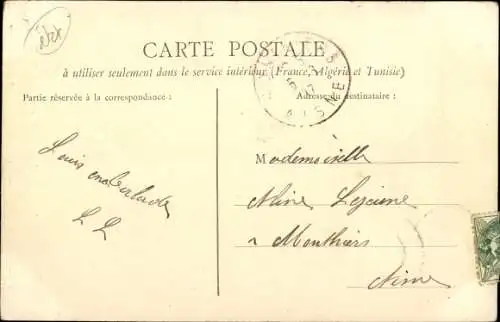 CARTE POSTALE
à utiliser seulement dans le service intérieur (France, Algérie et Tunisie)
Partie réservée à la correspondance :
Adresse du destinataire :
AISNE
Mademoiselle
Aline Lejeune
à Monthiers
Aisne
LL